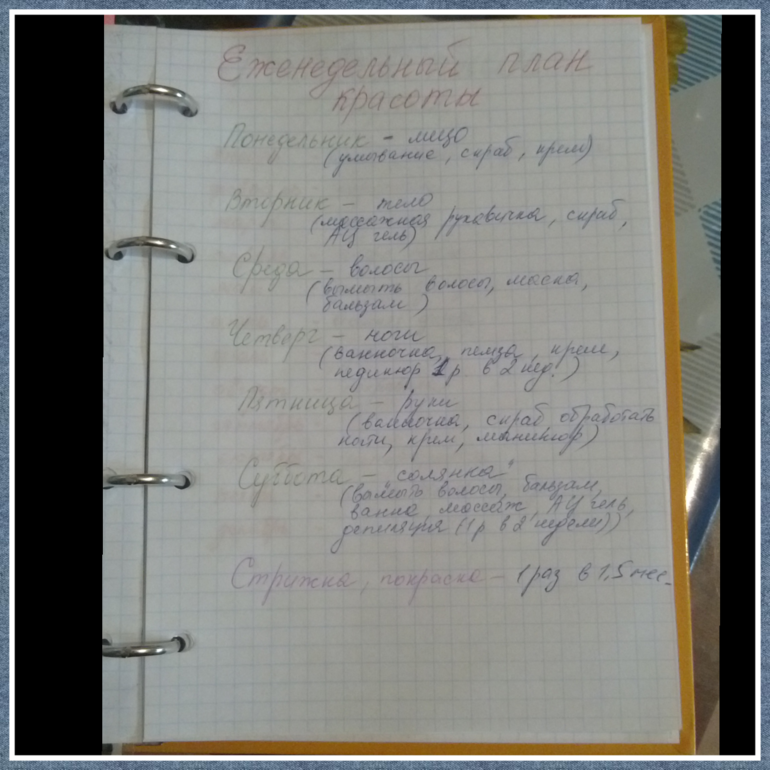 Еженедельный план
красоты
Понедельник - лицо
(умывание, скраб, крем)
Вторник - тело
(массажная рукавичка, скраб,
АЦ гель)
Среда - волосы
(вымыть волосы, маска,
бальзам)
Четверг - ноги
(ванночка, пемза, крем,
педикюр 1 р в 2 нед.)
Пятница - руки
(ванночка, скраб, обработать
ногти, крем, маникюр)
Суббота - "солянка"
(вымыть волосы, бальзам,
ванна, массаж, АЦ гель,
депиляция (1 р в 2 недели))
Стрижка, покраска - 1 раз в 1,5 мес.